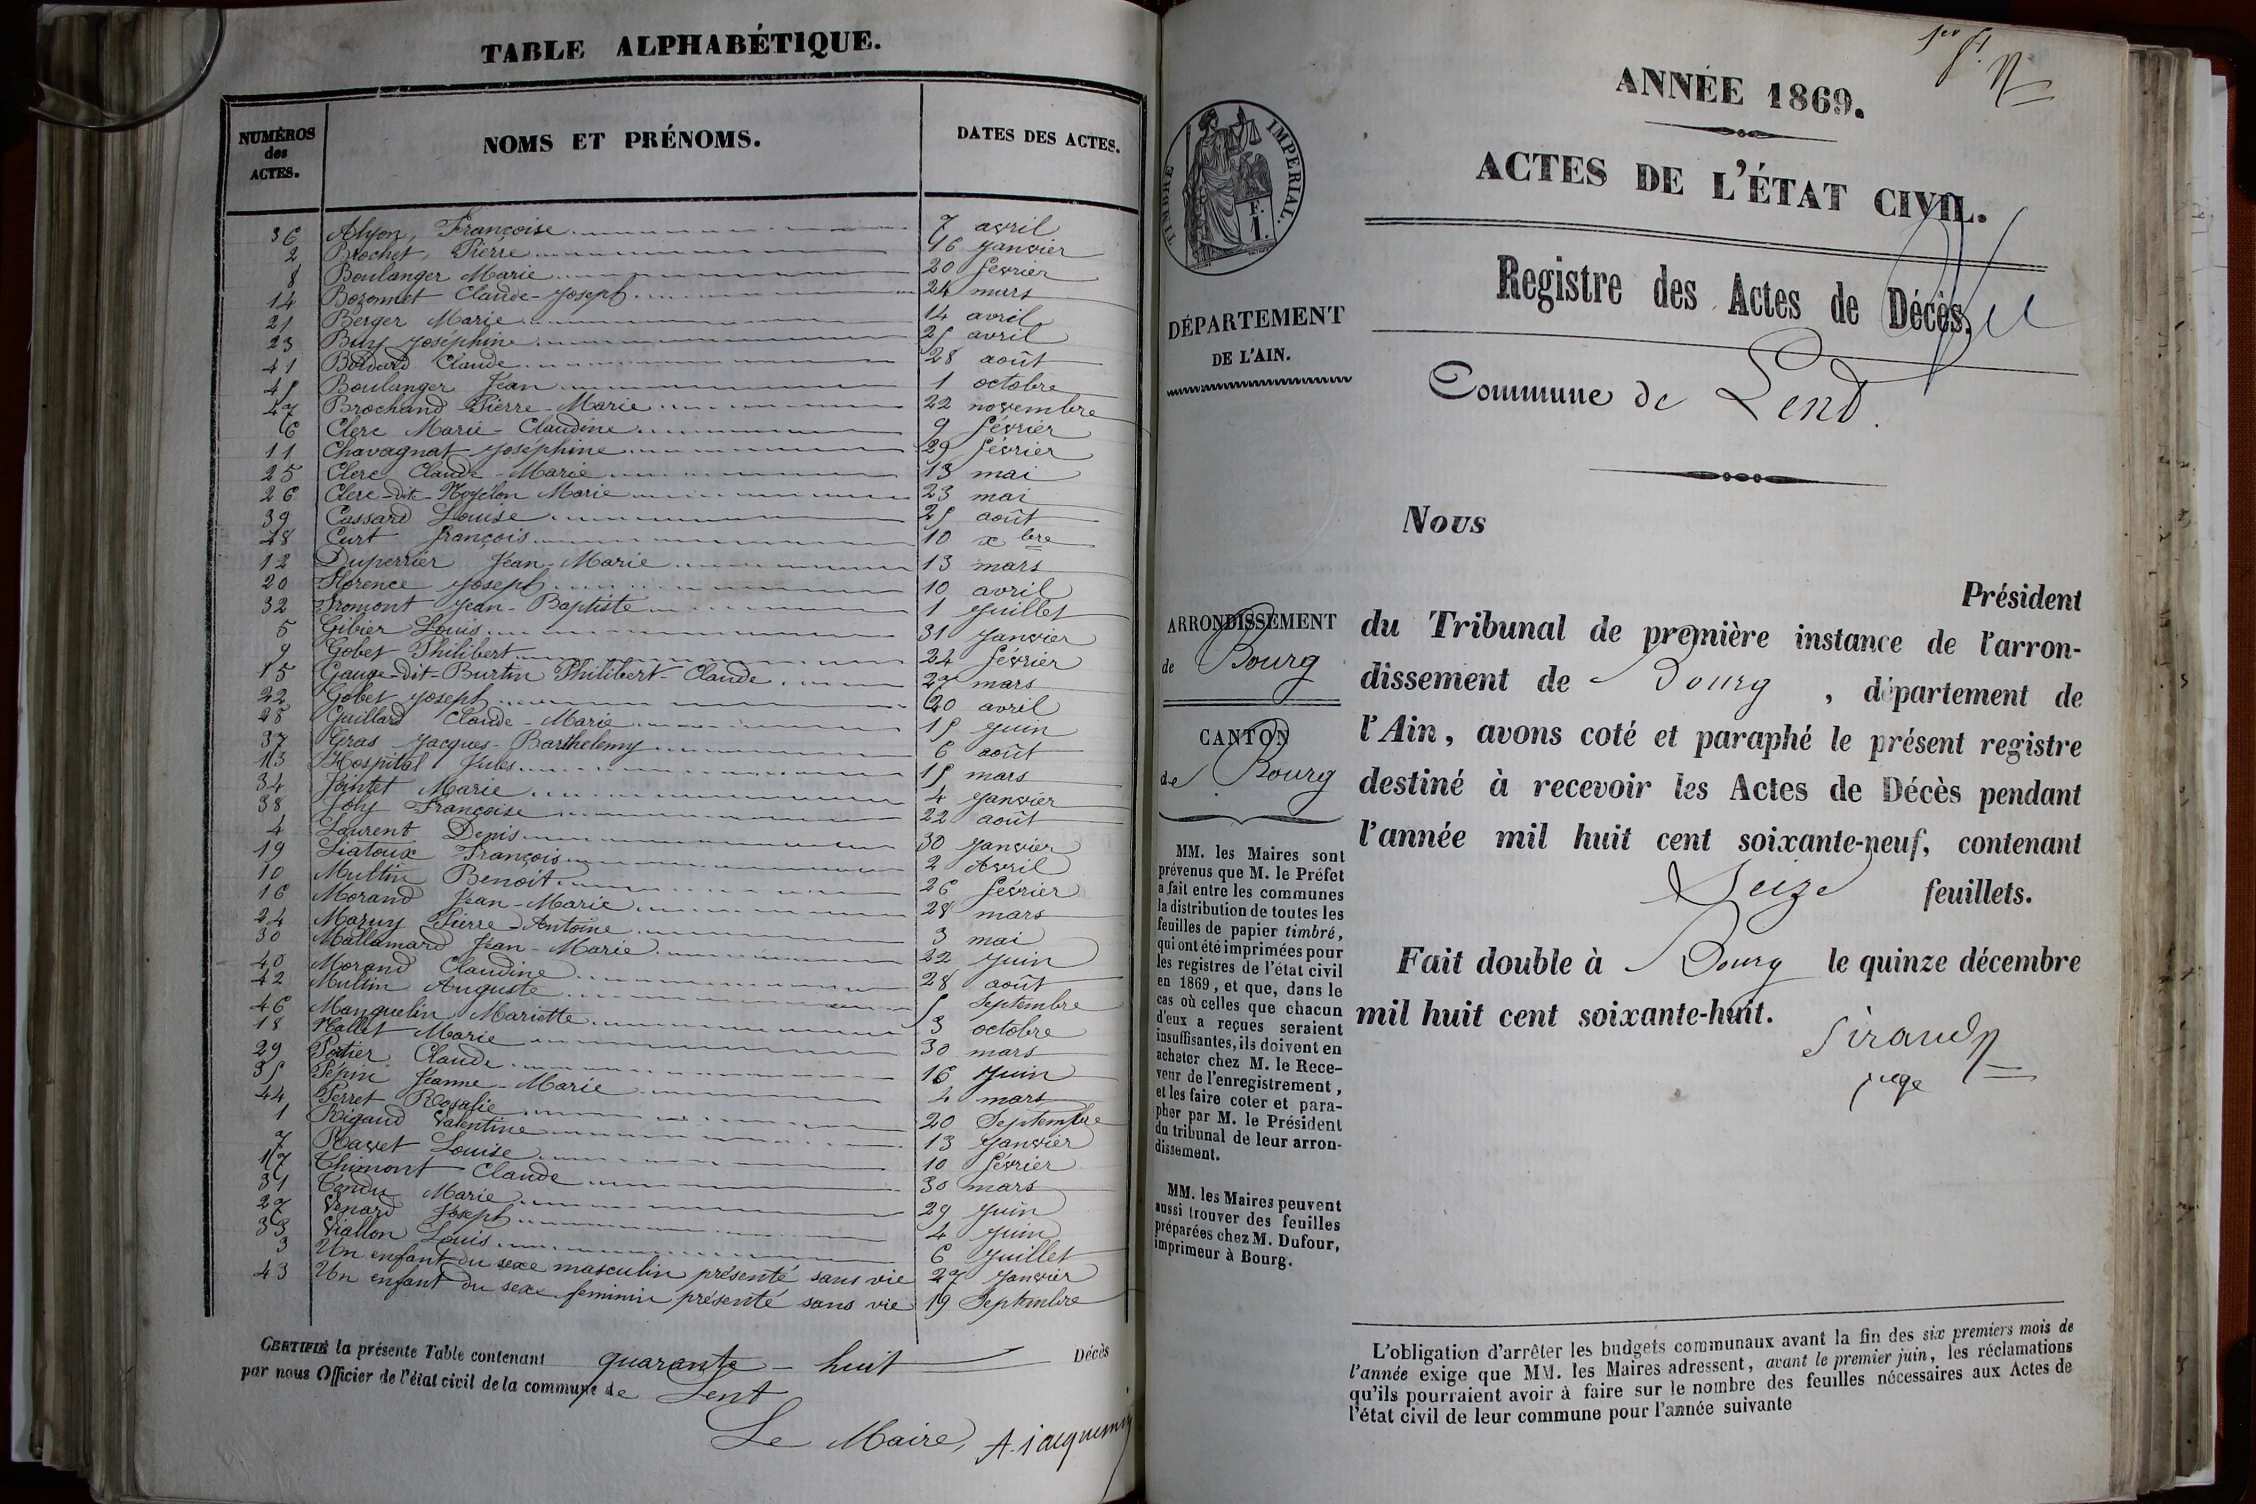 TABLE ALPHABÉTIQUE.
NUMÉROS des ACTES.
NOMS ET PRÉNOMS.
DATES DES ACTES.
36 Alyon, Françoise 7 avril
2 Brochet, Pierre 16 Janvier
8 Boulanger Marie 20 février
14 Bozonnet Claude-Joseph 24 mars
21 Berger Marie 14 avril
23 Buy Joséphine 25 avril
41 Claude 28 août
45 Boulanger Jean 1 octobre
47 Brochand Pierre-Marie 22 novembre
6 Clerc Marie-Claudine 9 février
11 Chavagnat Joséphine 29 février
25 Clerc Claude-Marie 13 mai
26 Clerc-dit- Marie 23 mai
39 Cassard Louise 25 août
48 Curt françois 10 xbre
12 Duperrier Jean-Marie 13 mars
20 Florence Joseph 10 avril
32 Fromont Jean-Baptiste 1 Juillet
5 Gibier Louis 31 Janvier
9 Gobet Philibert 24 février
15 Gauge-dit-Burtin Philibert-Claude 27 mars
22 Gobet Joseph 20 avril
28 Guillard Claude-Marie 15 Juin
37 Gras Jacques-Barthelemy 6 août
13 Hospital Jules 15 mars
34 Jointet Marie 4 Janvier
38 Joly Françoise 22 août
4 Laurent Denis 30 Janvier
19 Liatoux François 2 Avril
10 Multin Benoit 26 février
16 Morand Jean-Marie 28 mars
24 Mazuy Pierre-Antoine 3 mai
30 Mallamard Jean-Marie 22 Juin
40 Morand Claudine 28 août
42 Multin Auguste 5 Septembre
46 Manguelin Mariette 3 octobre
18 Nallet Marie 30 mars
29 Portier Claude 16 Juin
35 Pépin Jeanne-Marie 4 mars
44 Perret Rosalie 20 Septembre
1 Rigaud Valentine 13 Janvier
7 Ravet Louise 10 février
17 Thimont Claude 30 mars
31 Tondu Marie 29 Juin
27 Venard Joseph 4 Juin
33 Viallon Louis 6 Juillet
3 Un enfant du sexe masculin présenté sans vie 27 Janvier
43 Un enfant du sexe feminin présenté sans vie 19 Septembre
CERTIFIÉ la présente Table contenant quarante-huit Décès
par nous Officier de l'état civil de la commune de Lent
Le Maire, A. Jacquemin
1er ft
TIMBRE IMPERIAL.
ANNÉE 1869.
ACTES DE L'ÉTAT CIVIL.
Registre des Actes de Décès.
Vu
Commune de Lent.
DÉPARTEMENT
DE L'AIN.
ARRONDISSEMENT
de Bourg
CANTON
de Bourg
MM. les Maires sont
prévenus que M. le Préfet
a fait entre les communes
la distribution de toutes les
feuilles de papier timbré,
qui ont été imprimées pour
les registres de l'état civil
en 1869, et que, dans le
cas où celles que chacun
d'eux a reçues seraient
insuffisantes, ils doivent en
acheter chez M. le Rece-
veur de l'enregistrement,
et les faire coter et para-
pher par M. le Président
du tribunal de leur arron-
dissement.
MM. les Maires peuvent
aussi trouver des feuilles
préparées chez M. Dufour,
imprimeur à Bourg.
Nous
Président
du Tribunal de première instance de l'arron-
dissement de Bourg, département de
l'Ain, avons coté et paraphé le présent registre
destiné à recevoir les Actes de Décès pendant
l'année mil huit cent soixante-neuf, contenant
Seize feuillets.
Fait double à Bourg le quinze décembre
mil huit cent soixante-huit.
Sirand
juge
L'obligation d'arrêter les budgets communaux avant la fin des six premiers mois de
l'année exige que MM. les Maires adressent, avant le premier juin, les réclamations
qu'ils pourraient avoir à faire sur le nombre des feuilles nécessaires aux Actes de
l'état civil de leur commune pour l'année suivante